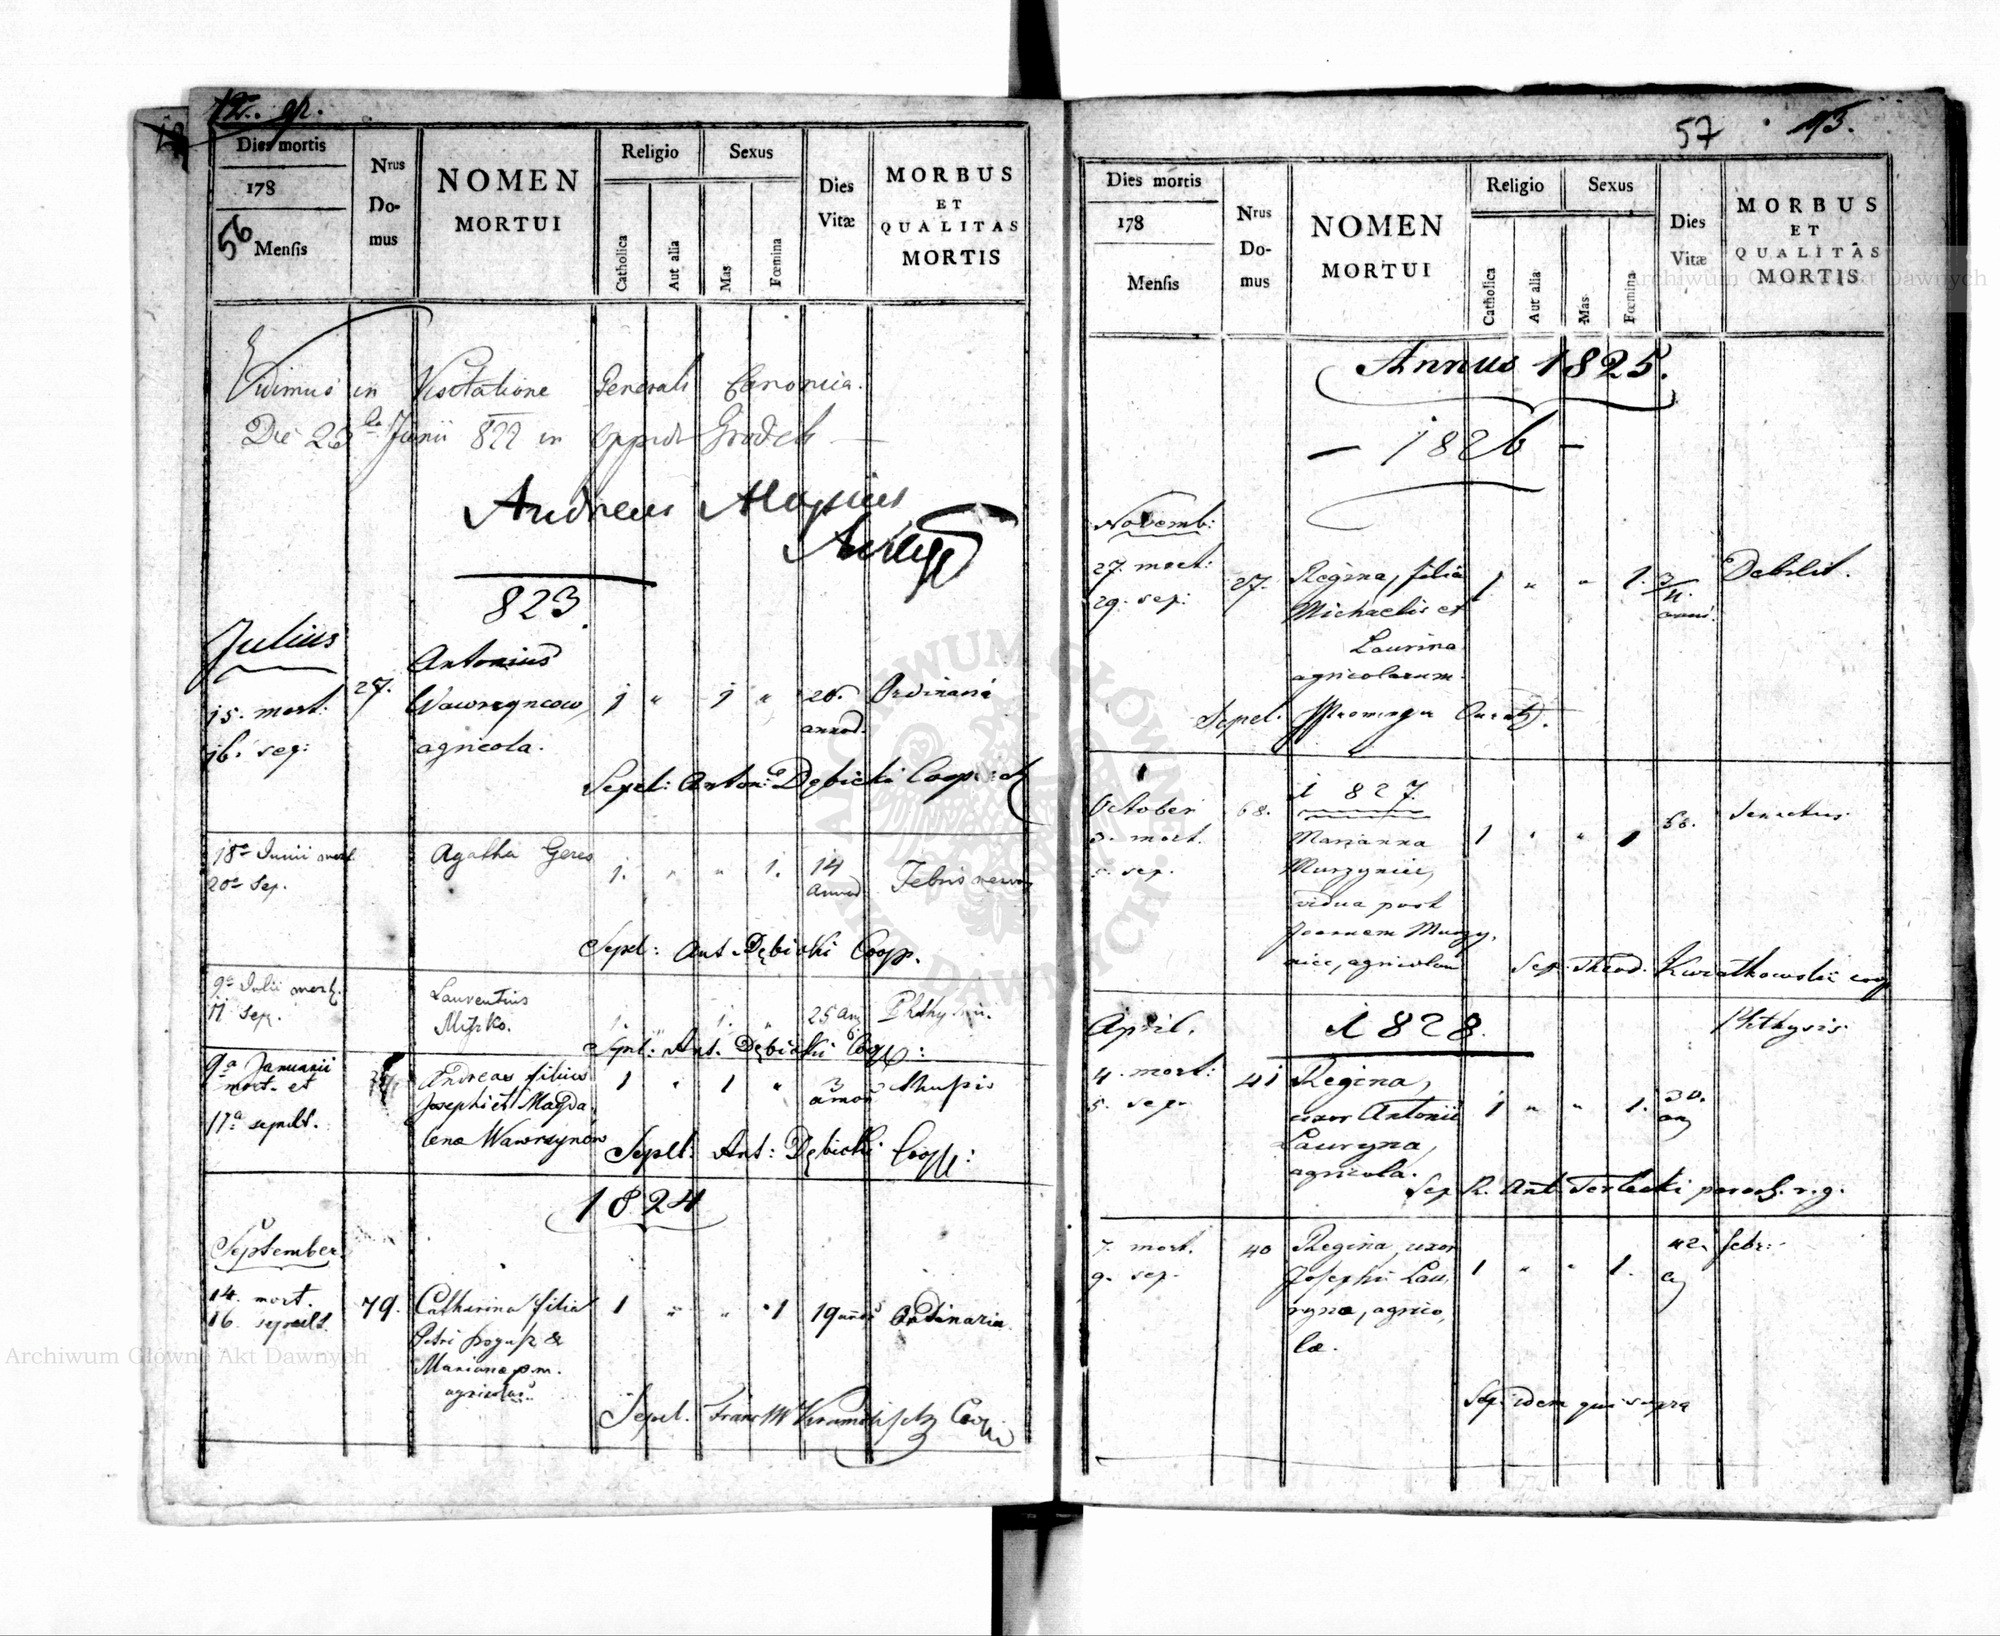 12.
Dies mortis
178
56
Mensis
Nrus Domus
NOMEN
MORTUI
Religio
Catholica
Aut alia
Sexus
Mas
Fœmina
Dies
Vitæ
MORBUS
ET
QUALITAS
MORTIS
Vidimus in Visitatione Generali Canonica
Die 26 Junii 822 in oppido Grodek
Andreas Aloysius
823.
Julius
15. mort: 27. Antonius
16. sep: Wawrzyncow, 1 " 1 " 26. Ordinaria
agricola. annor.
Sepel: Anton: Dębicki Coop:
18a Junii mort. Agatha Geres 1. " " 1. 14 Febris nervo
20a Sep. annor
Sepel: Ant. Dębicki Coop.
9a Julii mort. Laurentius
11 Sep. 1. " 1. " 25 an
Sepel: Ant. Dębicki Coop:
9a Januarii Andreas filius 1 " 1 " 3
mort. et Josephi et Magda
17a sepult. lena Wawrzynów
Sepel: Ant: Dębicki Coop:
1824
September
14. mort. 79. Catharina filia 1 " " 1 19 Ordinaria
16. sepult. Petri &
Mariana p.m.
Sepel. Franc Coop
57 13.
Dies mortis
178
Mensis
Nrus Domus
NOMEN
MORTUI
Religio
Catholica
Aut alia
Sexus
Mas
Fœmina
Dies
Vitæ
MORBUS
ET
QUALITAS
MORTIS
Annus 1825.
- 1826 -
Novemb:
27. mort: 27. Regina, filia 1 " " 1. 3/4 Debilit.
29. sep: Michaelis et anni
Laurina
agricolarum.
Sepel.
1827.
October 68. Marianna 1 " " 1 Senectus.
3. mort. Murzyniec,
5. sep. vidua post
Joannem Murzy,
niec, agricolam
Sep. Theod. Kwiatkowski coop
April. 1828. Phthysis.
4. mort: 41 Regina, 1 " " 1. 30.
5. sep. uxor Antonii an
Lauryna,
agricola.
Sep. R. Ant Terlecki paroch. r. g.
7. mort. 40 Regina, uxor 1 " " 1. 42. febr:
9. sep. Josephi Lau,
ryna, agrico,
læ.
Sep. idem qui supra
Archiwum Główne Akt Dawnych
Archiwum Główne Akt Dawnych
ARCHIWUM GŁÓWNE AKT DAWNYCH